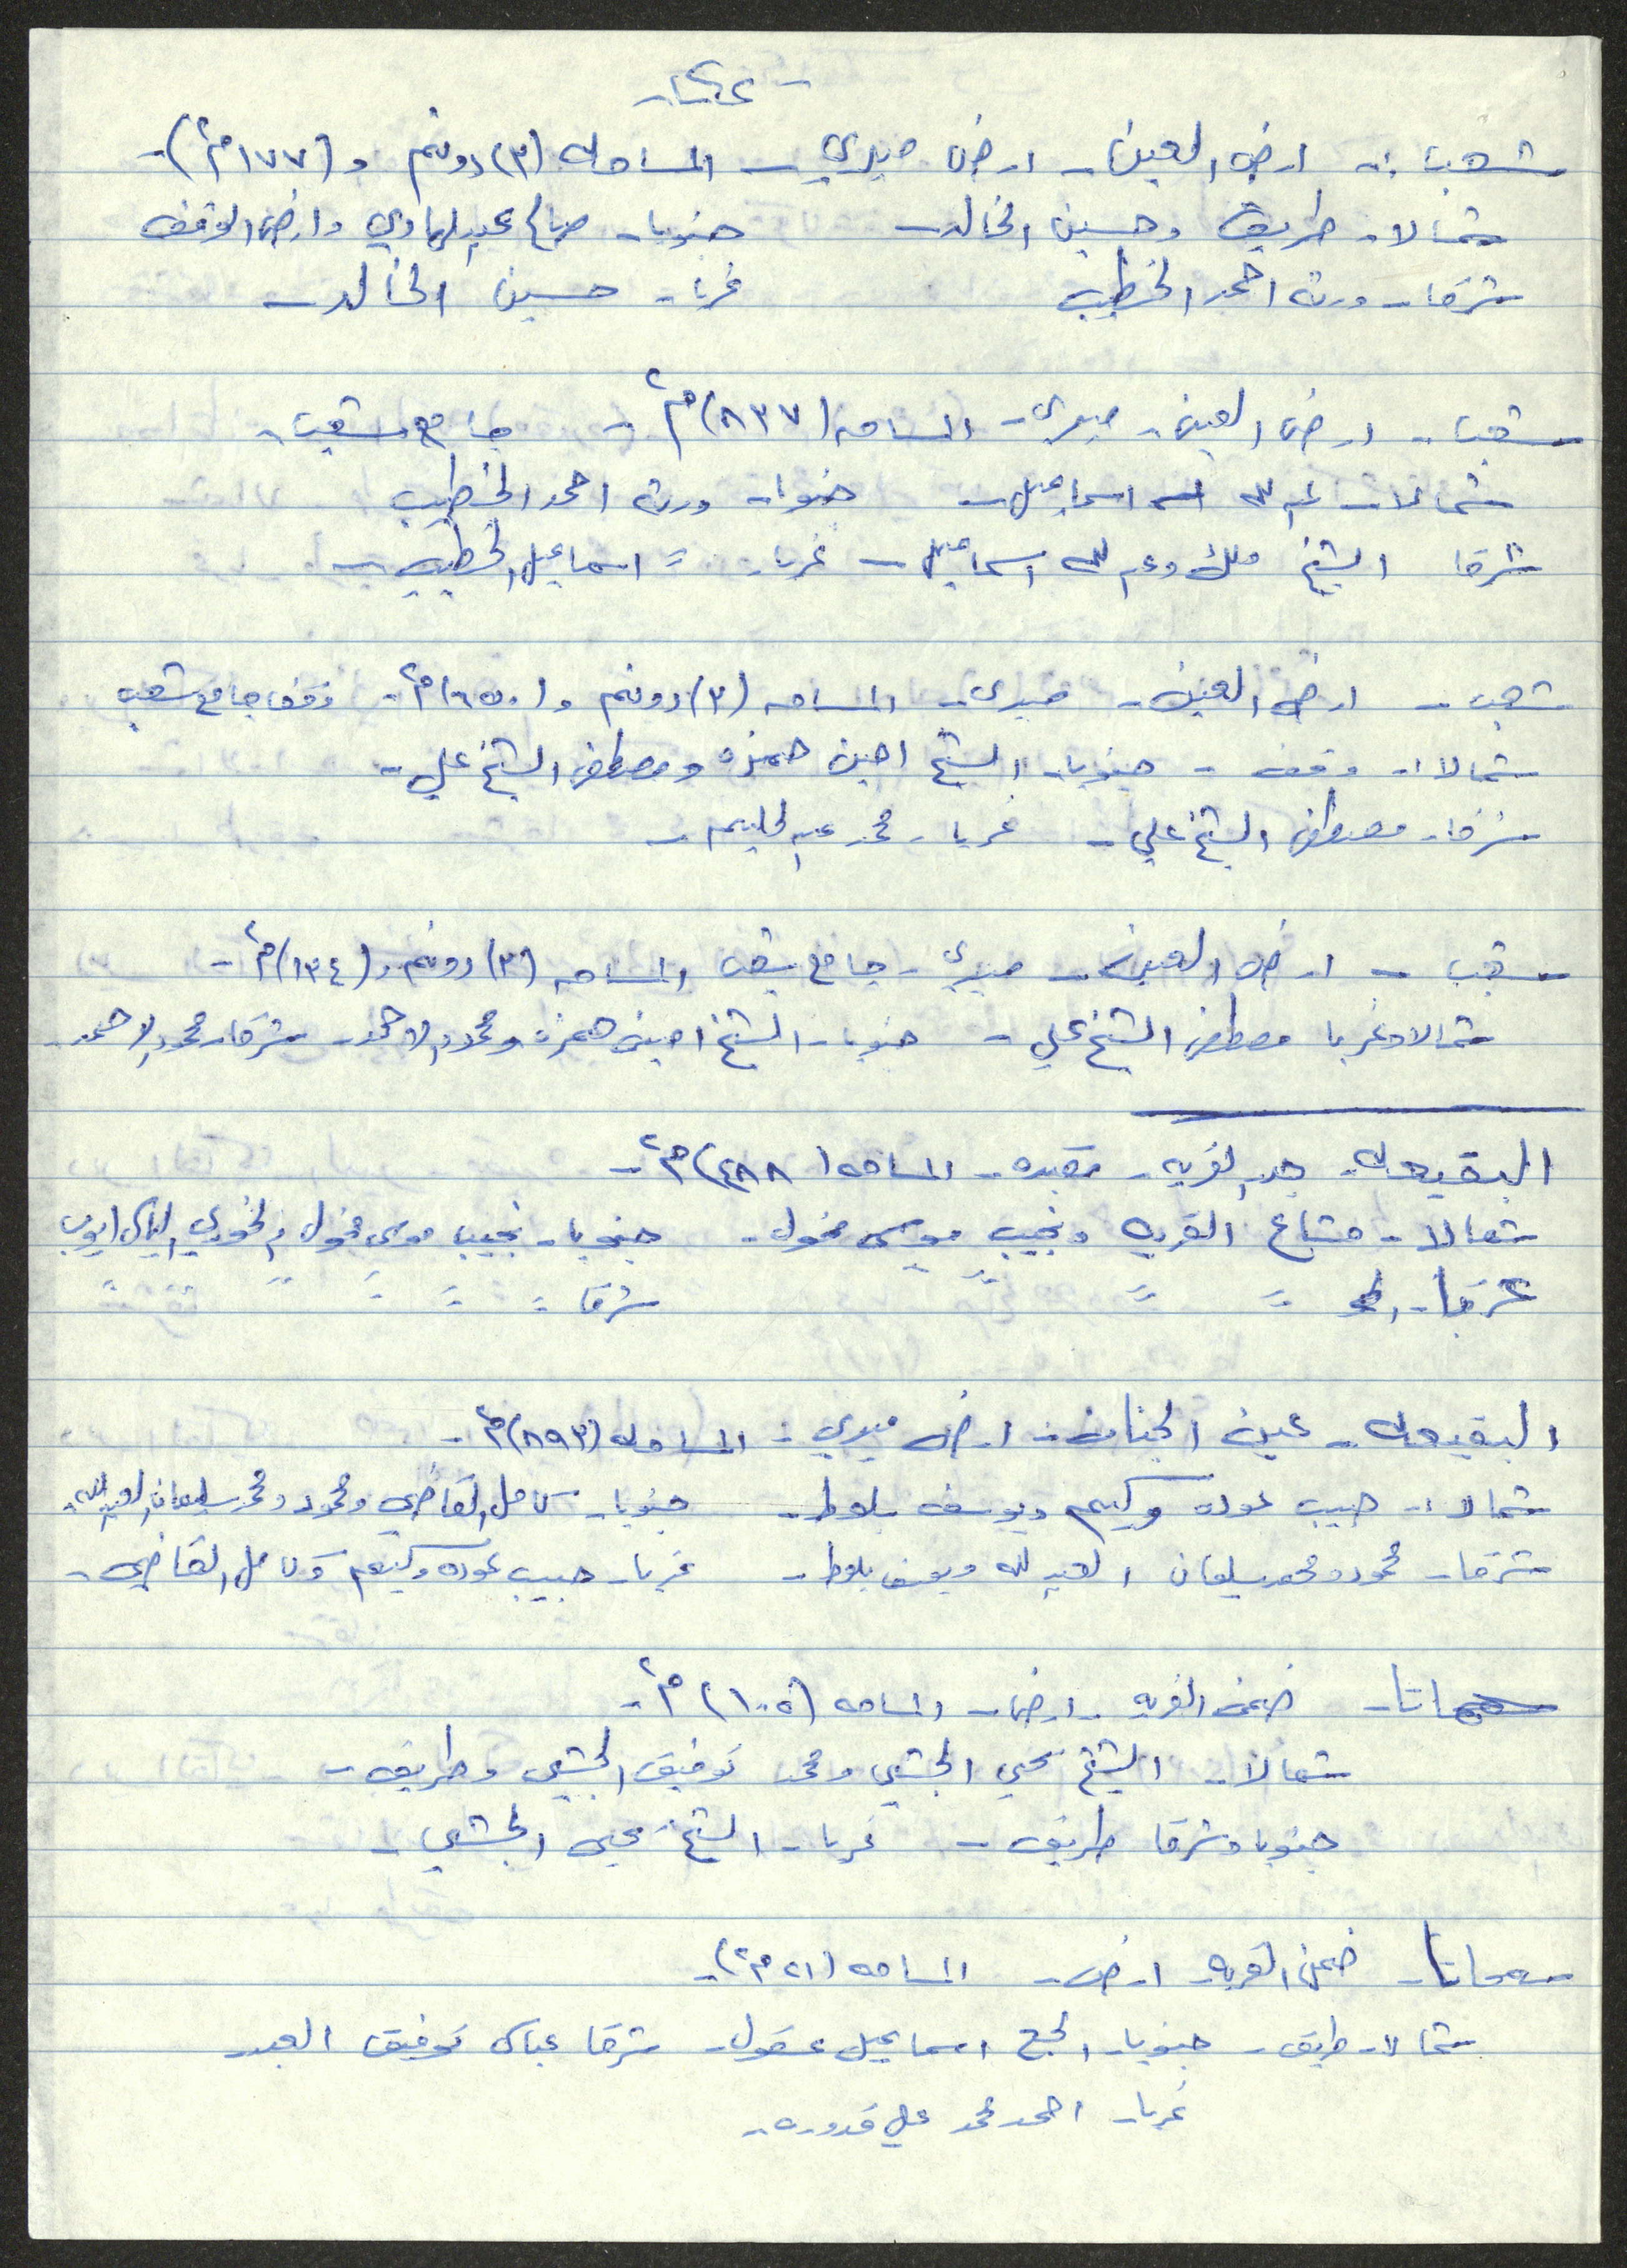 شعب :- ارض العين - ارض ميري - المساحه (٣) دونم و (١٧٧ م٢) -
شمالا - طريق وحسين الخالد - جنوبا - صالح عبد الهادي وارض الوقف
شرقا - ورثة احمد الخطيب غربا - حسين الخالد -
شعب - ارض العين - ميري - المساحه (٨٣٧) م٢ - جامع شعب -
شمالا - عبد الله اسماعيل - جنوبا - ورثة احمد الخطيب
شرقا الشيخ ملك وعبد الله اسماعيل - غربا - = اسماعيل الخطيب -
شعب - ارض العين - ميري - المساحه (٣) دونم و (٦٥٠) م٢ - وقف جامع شعب
شمالا :- وقف - جنوبا - الشيخ امين حمزه ومصطفى الشيخ علي -
شرقا - مصطفى الشيخ علي - غربا - محمد عبد الحليم -
شعب - ارض العين - ميري - جامع شعب المساحه (٣) دونم و (١٣٤) م٢ -
شمالا وغربا مصطفى الشيخ علي - جنوبا - الشيخ امين حمزه ومحمود الاحمد - شرقا - محمود الاحمد -
البقيعه - القريه - مقبره - المساحه (٤٨٨) م٢ -
شمالا - مشاع القريه ونجيب موسى مخول - جنوبا - نجيب موسى مخول والخوري الياس ايوب
غربا - = = = = شرقا = = = =
البقيعه - عين الجنان - ارض ميري - المساحه (٨٩٣) م٢ -
شمالا :- حبيب عوده وكيم ويوسف بلوط - جنوبا - كامل القاضي ومحمود ومحمد سليمان العبد الله -
شرقا - محمود ومحمد سليمان العبد الله ويوسف بلوط - غربا - حبيب عوده وكيم وكامل القاضي -
سحماتا - ضمن القريه - ارض - المساحه (١٠٠٥) م٢ -
شمالا - الشيخ يحيى الجشي ومحمد توفيق الجشي وطريق -
جنوبا وشرقا طريق - غربا - الشيخ يحيى الجشي -
سحماتا - ضمن القريه - ارض - المساحه (٢١ م٢) -
شمالا - طريق - جنوبا - الحج اسماعيل عسقول - شرقا عباس توفيق العبد
غربا - احمد محمد علي قدوره -